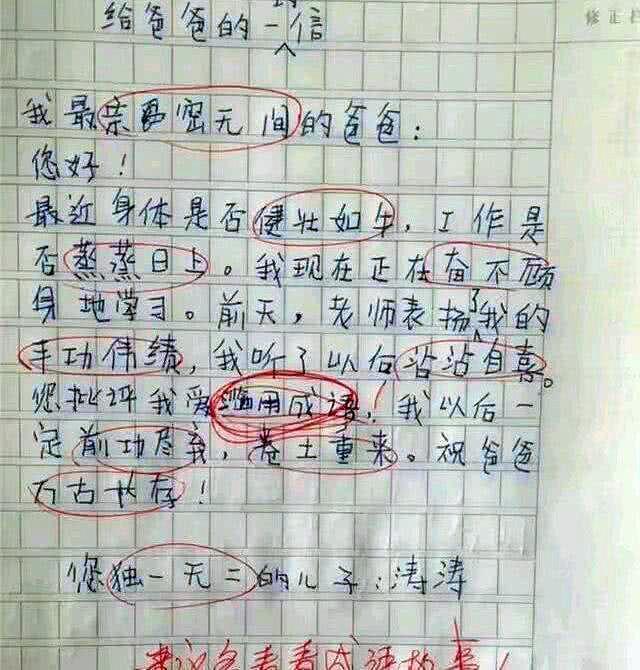 修正栏
给爸爸的一封信
我最亲爱密无间的爸爸:
您好!
最近身体是否健壮如牛,工作是
否蒸蒸日上。我现在正在奋不顾
身地学习。前天,老师表扬了我的
丰功伟绩,我听了以后沾沾自喜。
您批评我爱滥用成语!我以后一
定前功尽弃,卷土重来。祝爸爸
万古长存!
您独一无二的儿子:涛涛
建议多看看成语故事!